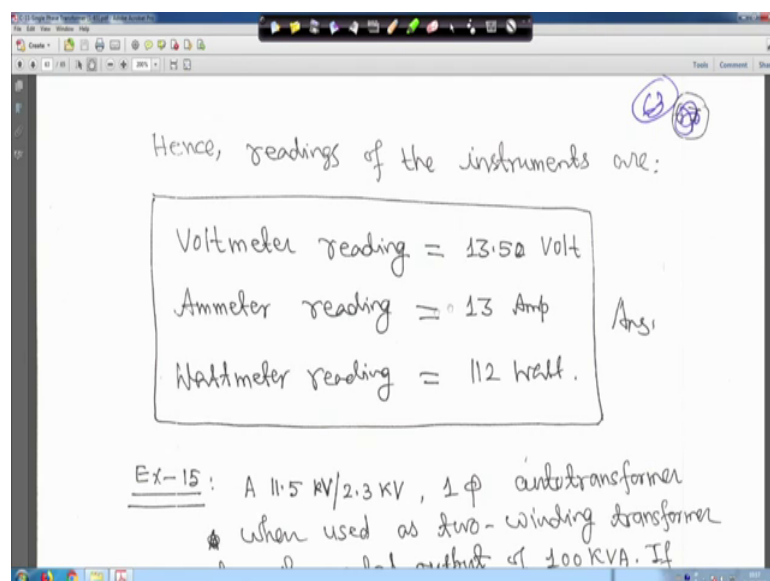 File Edit View Window Help
Create
Tools Comment
Hence, readings of the instruments are:
Voltmeter reading = 13.50 Volt
Ammeter reading = 13 Amp
Ans,
Wattmeter reading = 112 Watt.
Ex-15: A 11.5 KV/2.3 KV, 1φ autotransformer
when used as two-winding transformer
output of 100 KVA. If